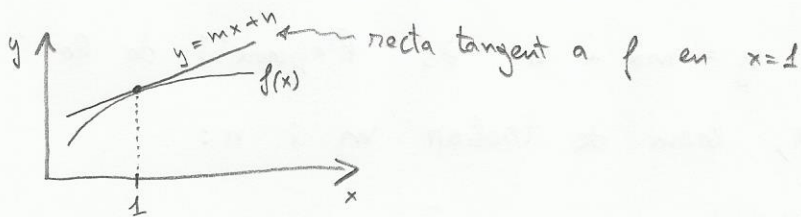 y = mx + n
recta tangent a f en x=1
y
f(x)
1
x